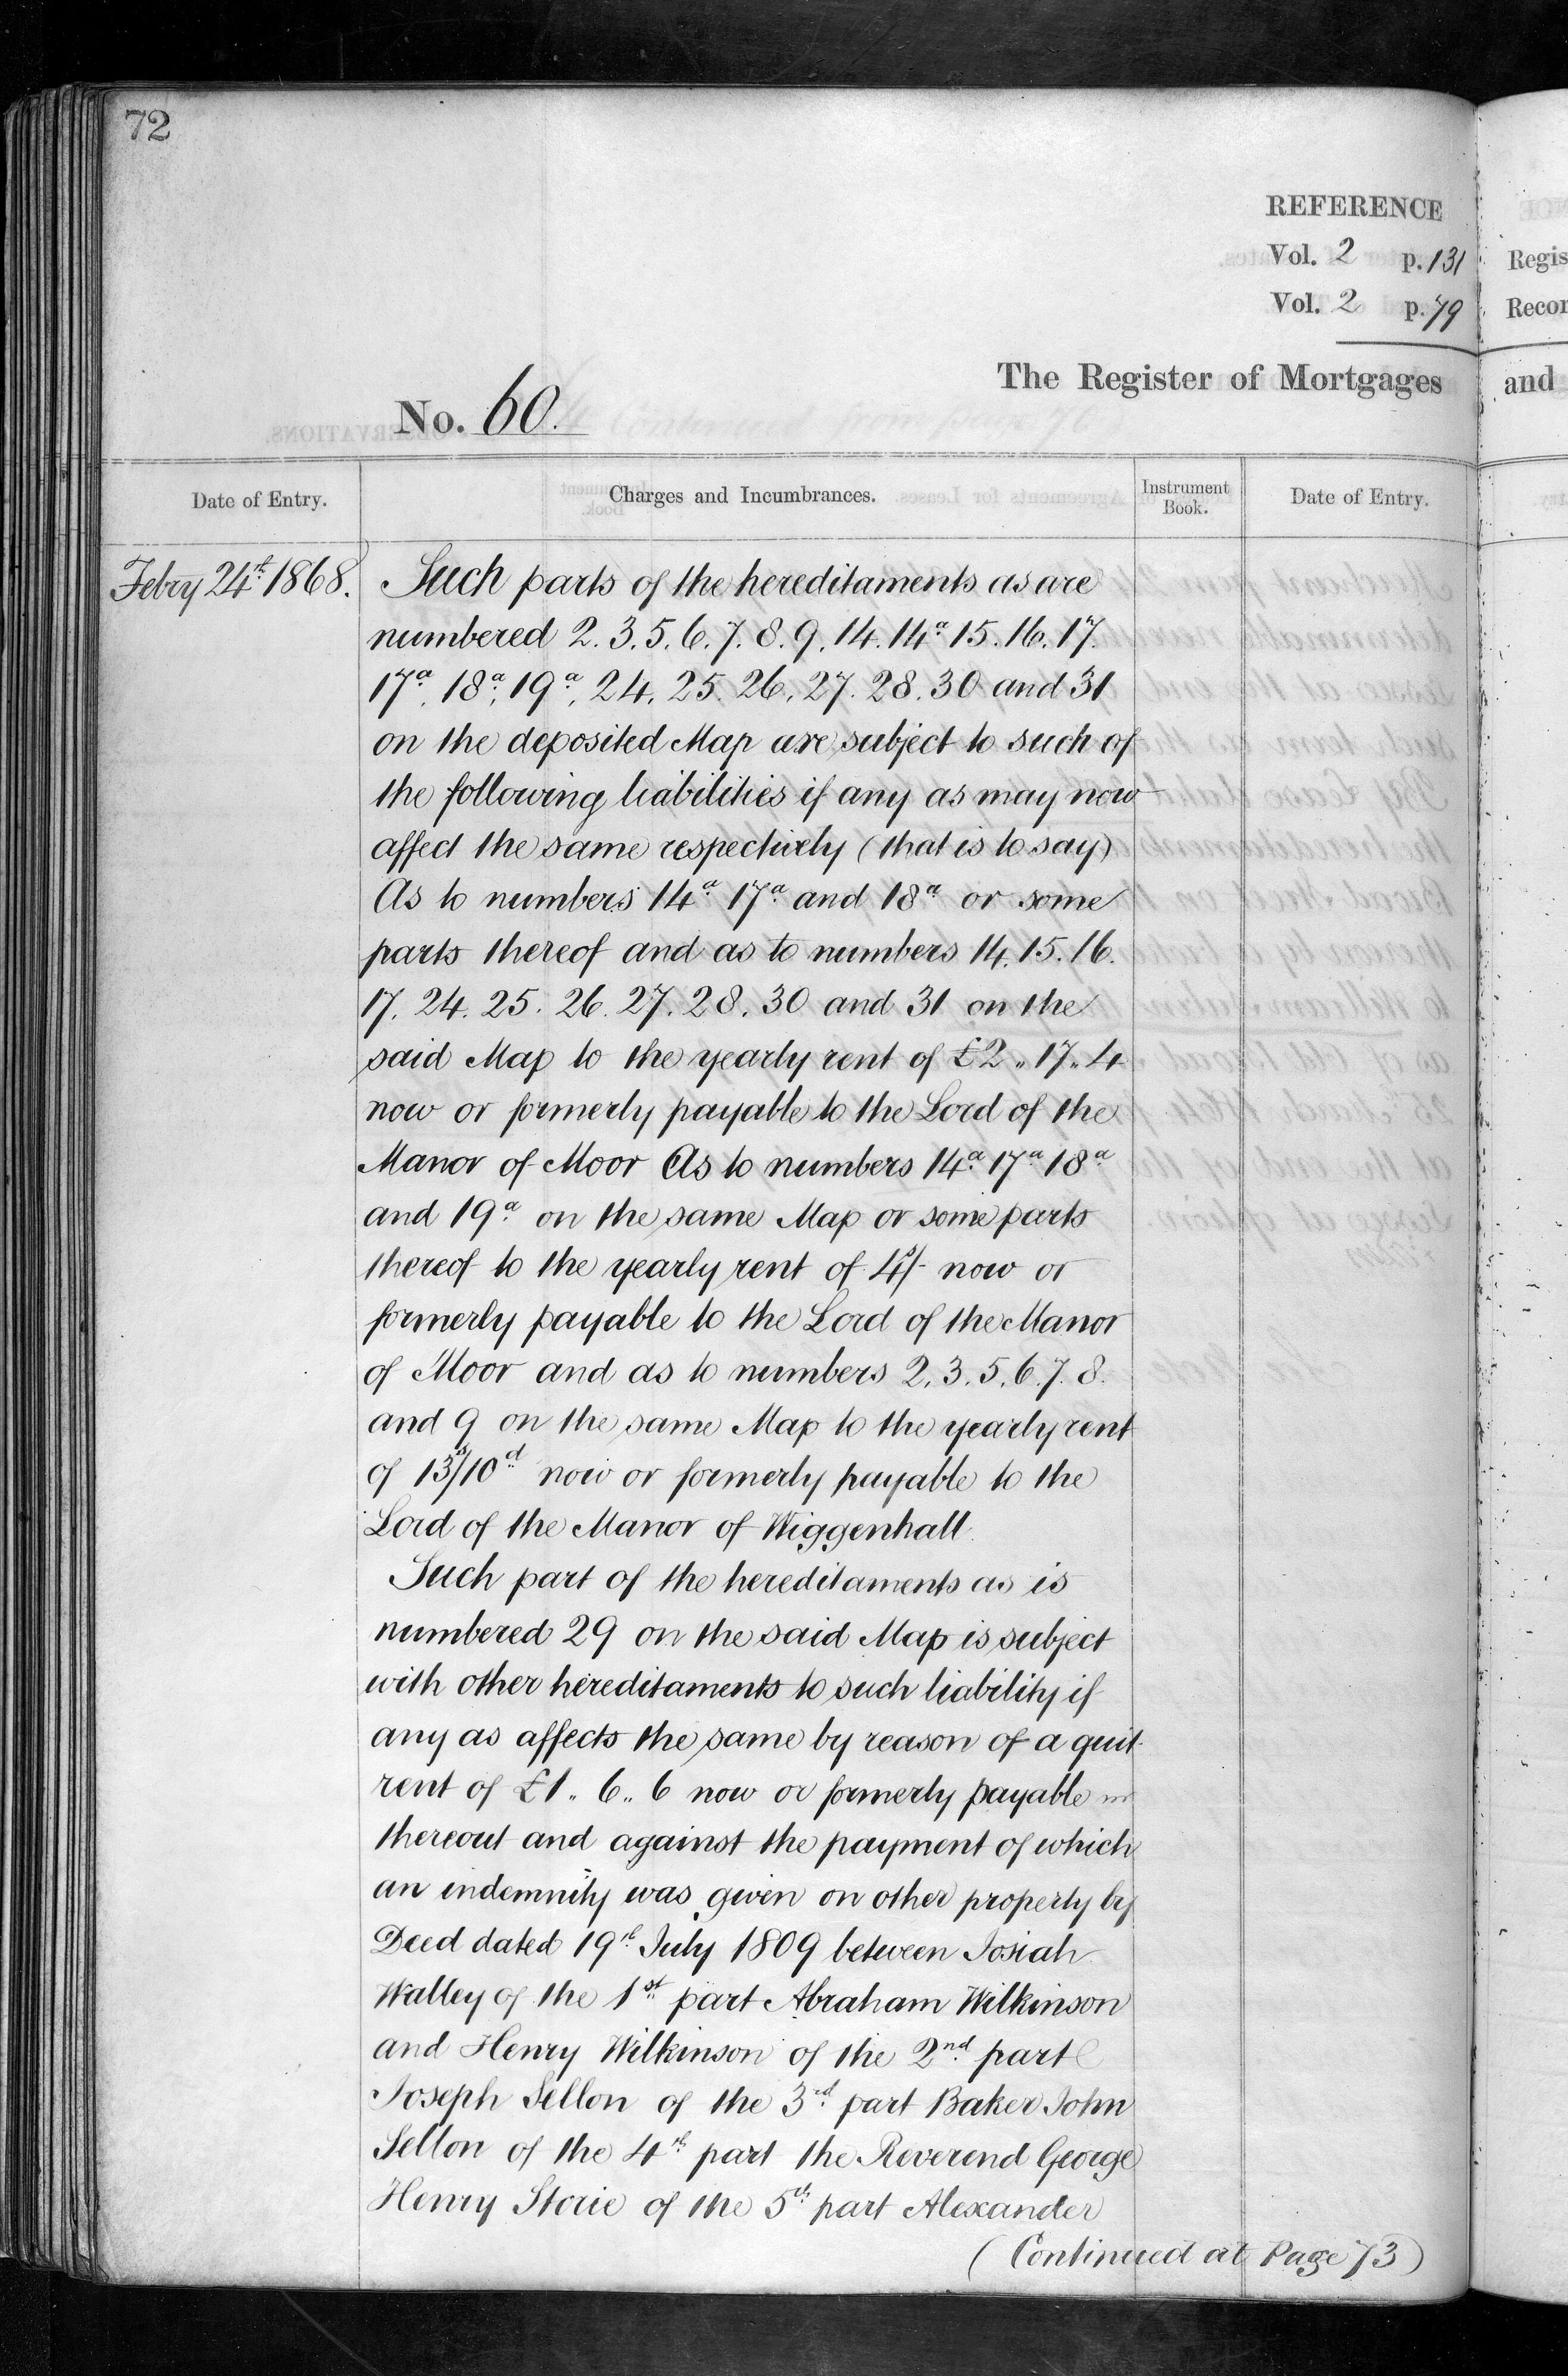 72
REFERENCE
Vol. 2 p. 131
Vol. 2 p. 79
Regis
Recor
The Register of Mortgages
and
No. 60.
Date of Entry.
Charges and Incumbrances.
Instrument Book.
Date of Entry.
Febry 24th 1868.
Such parts of the hereditaments as are
numbered 2. 3. 5. 6. 7. 8. 9. 14. 14a 15. 16. 17.
17a, 18a, 19a, 24. 25. 26. 27. 28. 30 and 31
on the deposited Map are subject to such of
the following liabilities if any as may now
affect the same respectively (that is to say)
As to numbers 14a 17a and 18a or some
parts thereof and as to numbers 14. 15. 16.
17. 24. 25. 26. 27. 28. 30 and 31 on the
said Map to the yearly rent of £2 „ 17 „ 4
now or formerly payable to the Lord of the
Manor of Moor As to numbers 14a 17a 18a
and 19a on the same Map or some parts
thereof to the yearly rent of 4s/- now or
formerly payable to the Lord of the Manor
of Moor and as to numbers 2. 3. 5. 6. 7. 8.
and 9 on the same Map to the yearly rent
of 13s/10d now or formerly payable to the
Lord of the Manor of Wiggenhall.
Such part of the hereditaments as is
numbered 29 on the said Map is subject
with other hereditaments to such liability if
any as affects the same by reason of a quit
rent of £1 „ 6 „ 6 now or formerly payable
thereout and against the payment of which
an indemnity was given on other property by
Deed dated 19th July 1809 between Josiah
Walley of the 1st part Abraham Wilkinson
and Henry Wilkinson of the 2nd part
Joseph Sellon of the 3rd part Baker John
Sellon of the 4th part the Reverend George
Henry Storie of the 5th part Alexander
(Continued at Page 73)